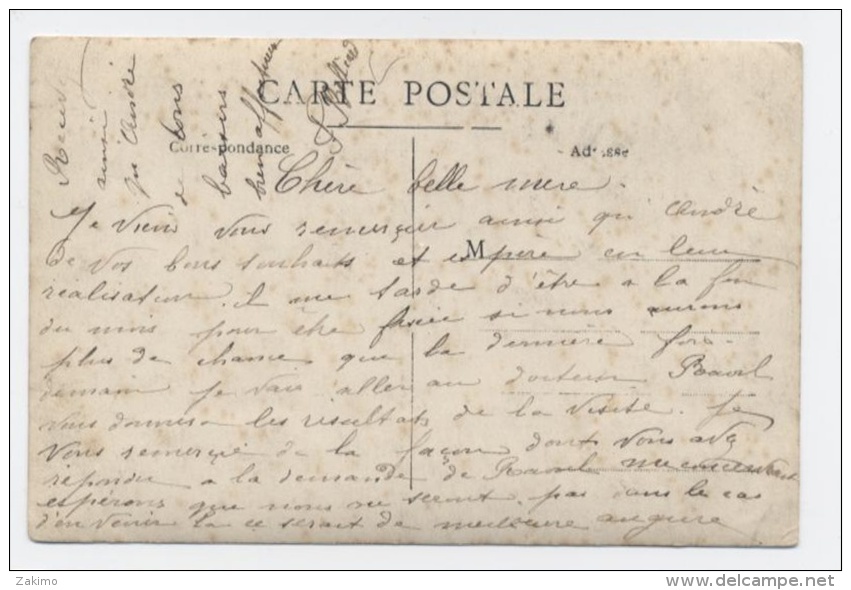 CARTE POSTALE
Correspondance
Adresse
M
Chère belle mere.
Je viens vous remerçier ainsi qu'André
de vos bons souhaits et espere en leur
réalisation. il me tarde d'être a la fin
du mois pour être fixée si nous aurons
plus de chance que la dernière fois.
demain je vais aller au docteur Raoul
vous donnera les resultats de la visite. Je
vous remerçie de la façon dont vous avez
repondu a la demande de Raoul
espérons que nous ne seront pas dans le cas
d'en venir la ce serait de meilleure augure
Recevez
ainsi
qu'André
de bons
baisers
bien affectueux
Zakimo
delcampe.net